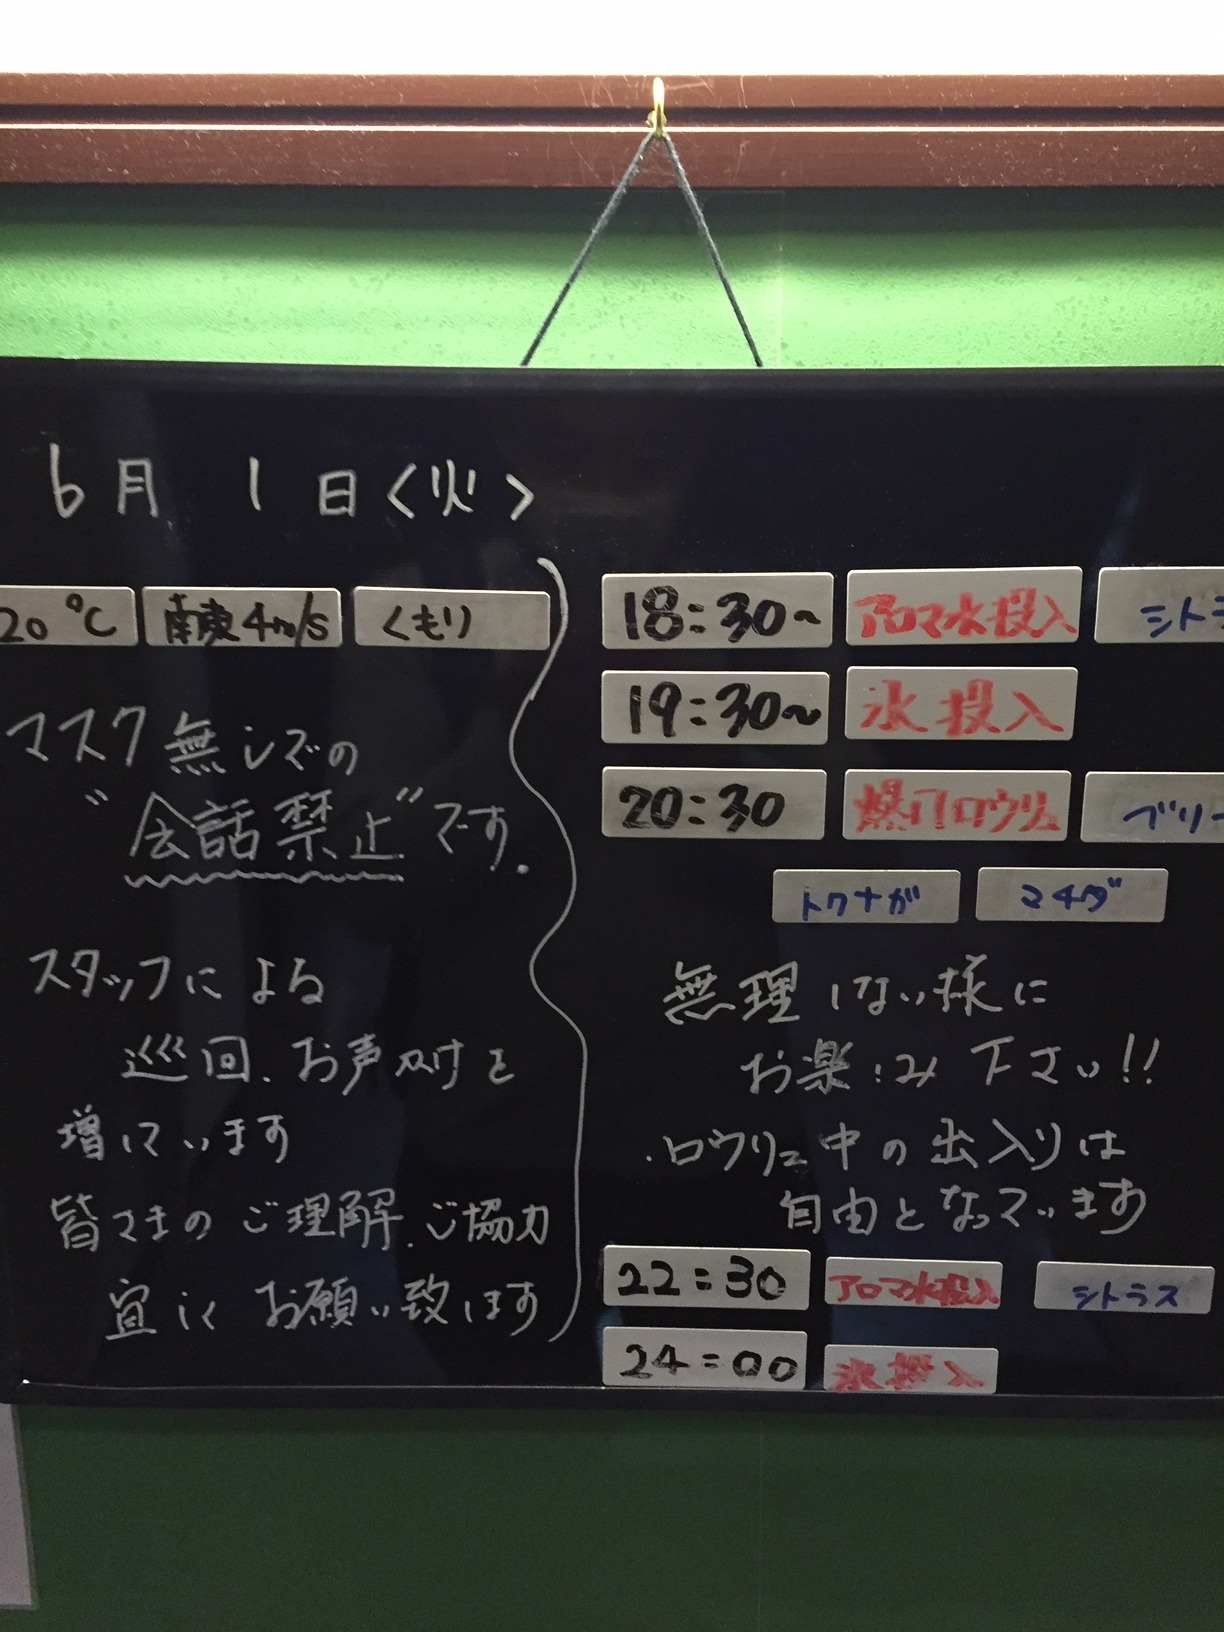 6月 1日<火>
20℃ 南東4m/s くもり
マスク無しでの
"会話禁止"です.
スタッフによる
巡回、お声掛けを
増しています
皆さまのご理解、ご協力
宜しく お願い致します
18:30~ アロマ水投入 シトラ
19:30~ 氷投入
20:30 爆ロウリュ ブリー
トクナガ マチダ
無理しない様に
お楽しみ下さい!!
.ロウリュ中の出入りは
自由となっています
22:30 アロマ水投入 シトラス
24:00 氷投入